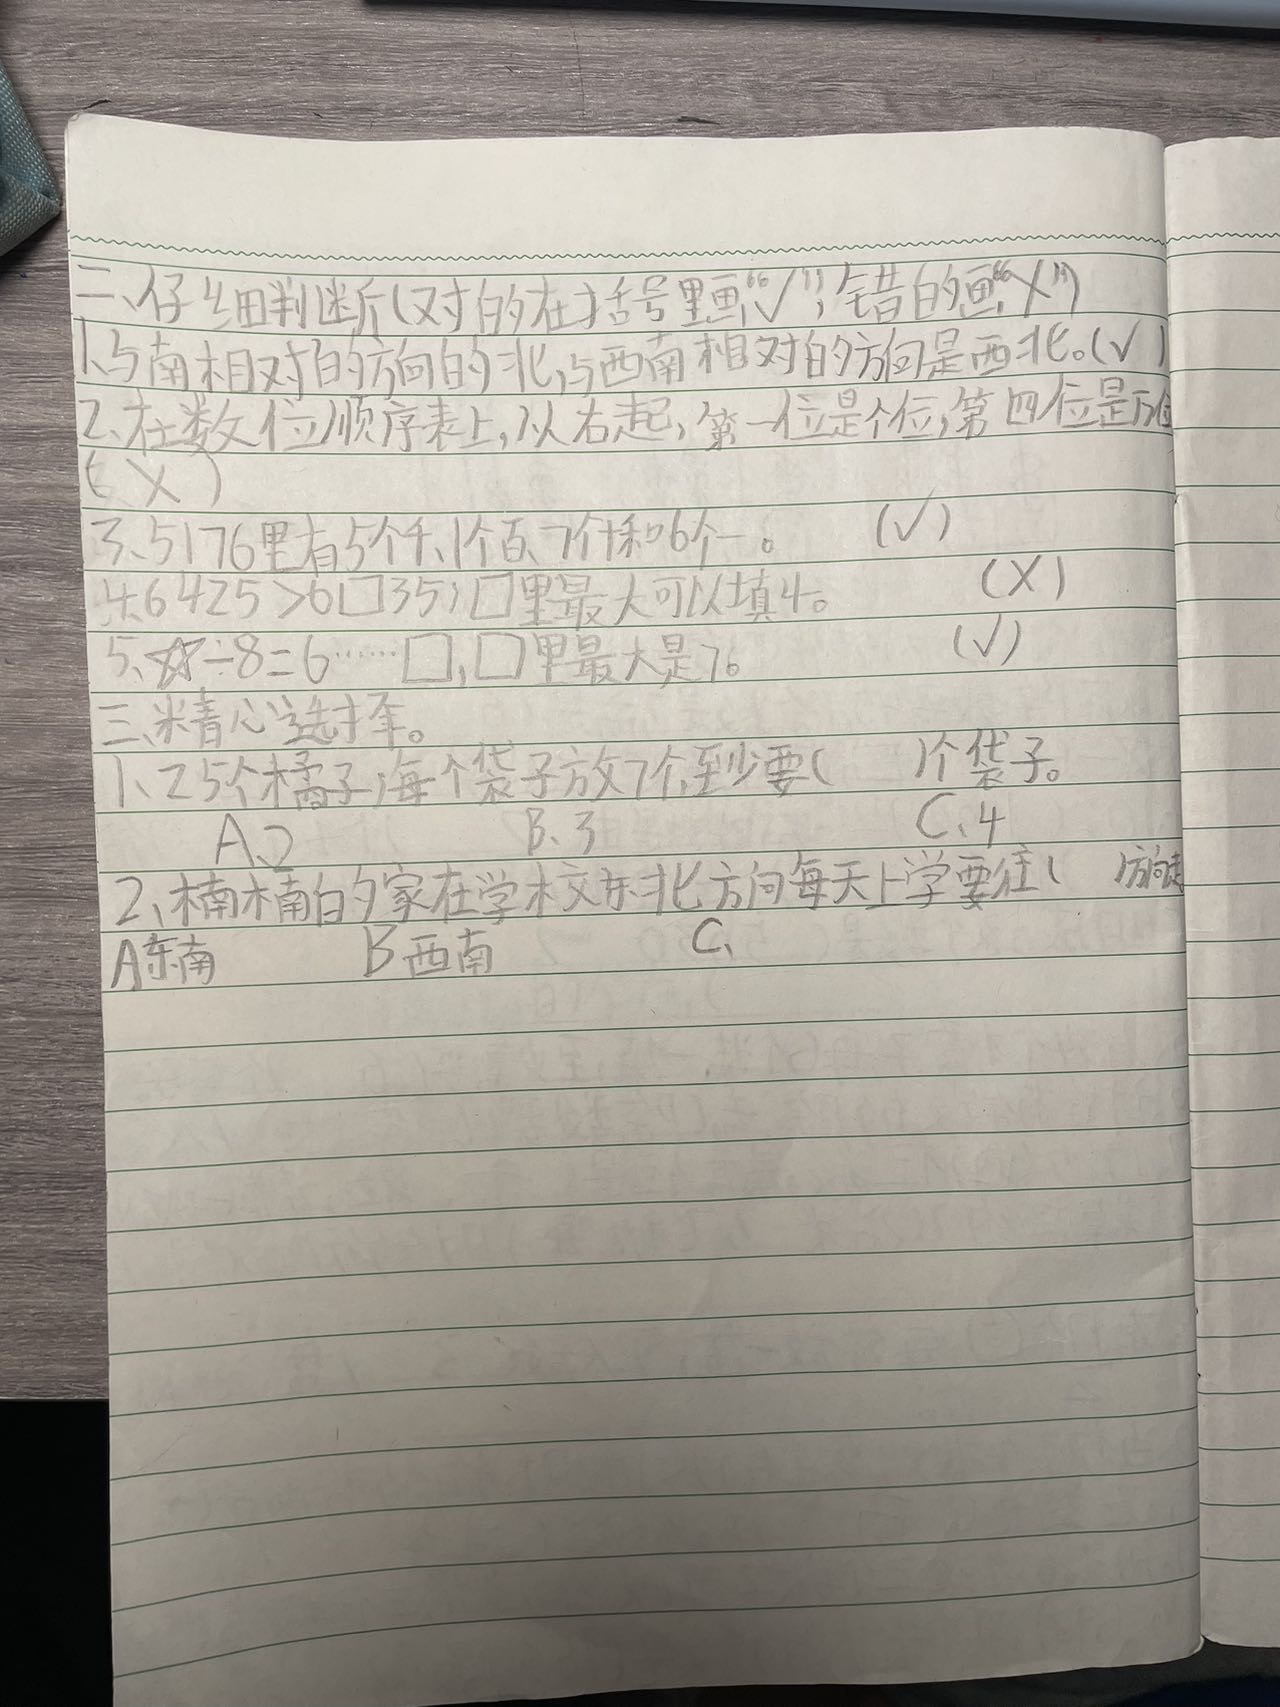 二、仔细判断(对的在括号里画“√”,错的画“X”)
1、与南相对的方向的北,与西南相对的方向是西北。(√)
2、在数位顺序表上,从右起,第一位是个位,第四位是万位
(X)
3、5176里有5个千、1个百、7个十和6个一。 (√)
4、6425>6□35,□里最大可以填4。 (X)
5、☆÷8=6……□,□里最大是7。 (√)
三、精心选择。
1、25个橘子,每个袋子放7个,至少要( )个袋子。
A、2 B、3 C、4
2、楠楠的家在学校东北方向每天上学要往( )方向走
A东南 B西南 C、